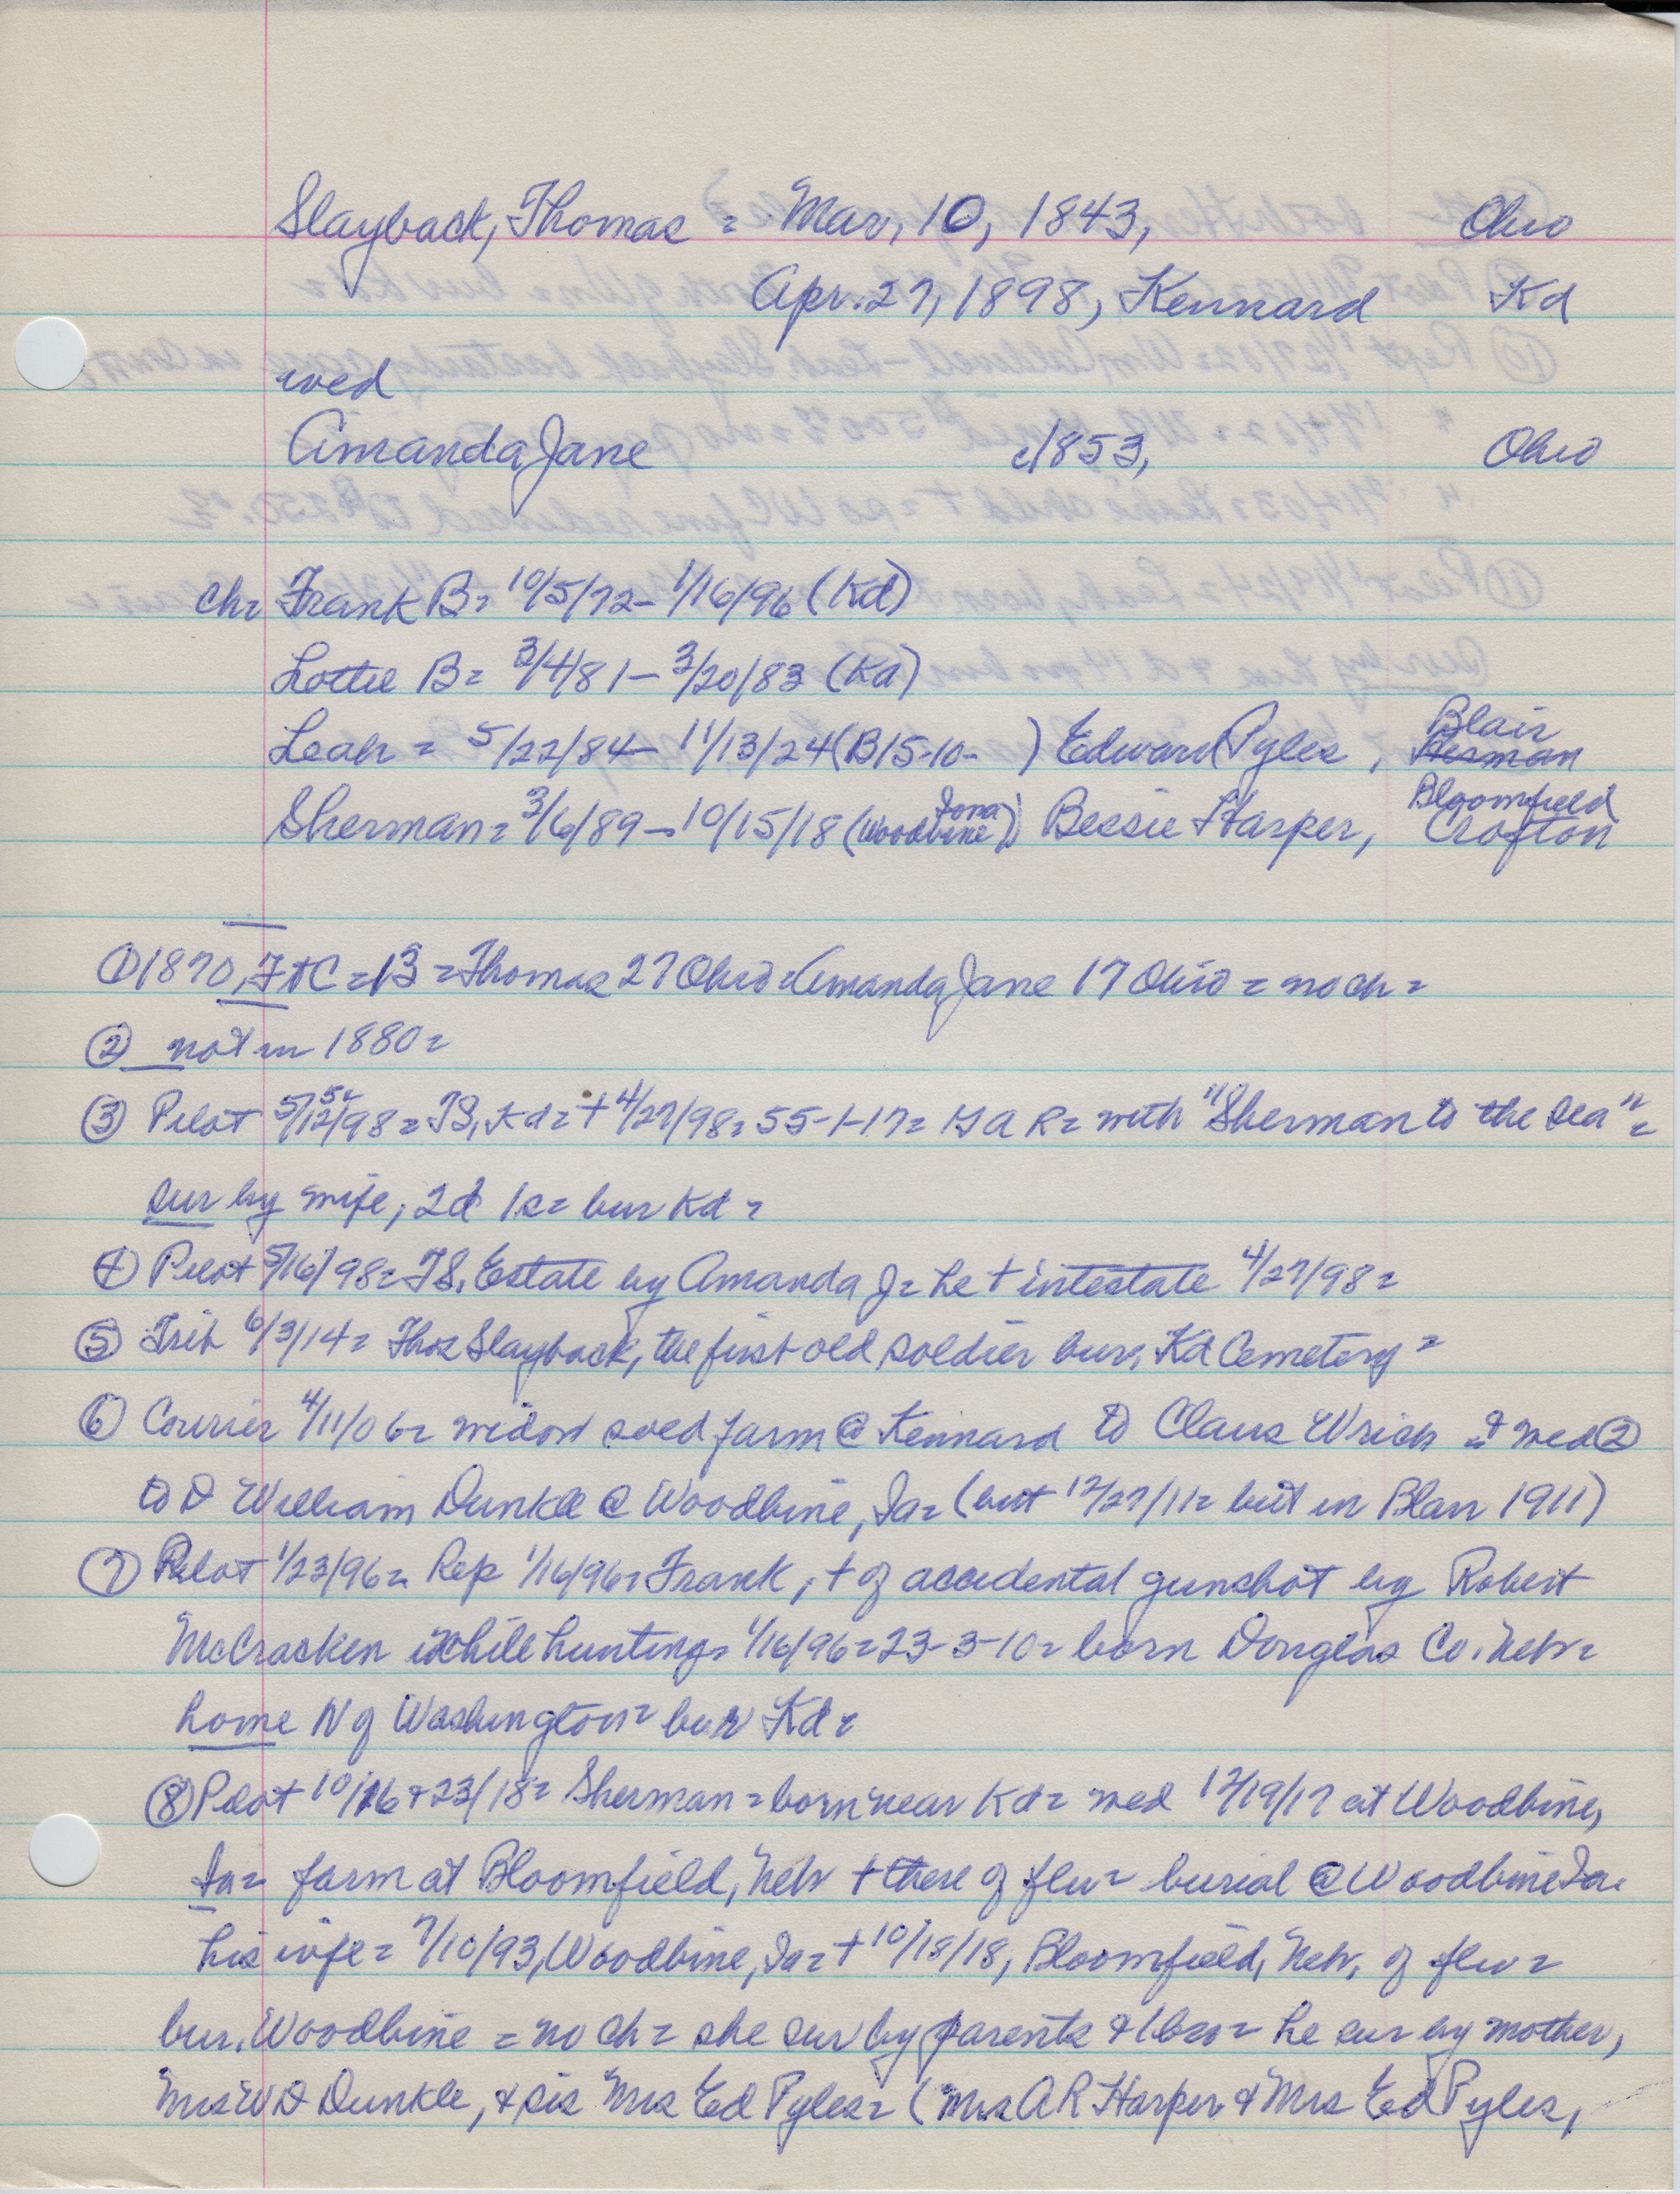 Slayback, Thomas = Mar, 10, 1843, Ohio
Apr. 27, 1898, Kennard Kd
wed
Amanda Jane c/1853, Ohio
ch= Frank B= 10/5/72 - 1/16/96 (Kd)
Lottie B= 3/4/81 - 3/20/83 (Kd)
Leah = 5/22/84 - 11/13/24 (B15-10- ) Edward Pyles, Blair
Herman
Sherman = 3/6/89 - 10/15/18 (Woodbine Iowa) Bessie Harper, Bloomfield
Crofton
① 1870, FtC = 13 = Thomas 27 Ohio = Amanda Jane 17 Ohio = no ch =
② not in 1880 =
③ Pilot 5/12/98 = TS, Kd = + 4/27/98 = 55-1-17 = GAR = with "Sherman to the Sea" =
sur by wife, 2d 1s = bur Kd =
④ Pilot 5/16/98 = TS. Estate by Amanda J = he + intestate 4/27/98 =
⑤ Trib 6/3/14 = Thos Slayback, the first old soldier bur, Kd Cemetery =
⑥ Courier 4/11/06 = widow sold farm @ Kennard to Claus Wrich = & wed ②
to D William Dunkle @ Woodbine, Ia = (but 12/27/11 = but in Blair 1911)
⑦ Pilot 1/23/96 = Rep 1/16/96 = Frank, + of accidental gunshot by Robert
McCracken while hunting = 1/16/96 = 23-3-10 = born Douglas Co. Nebr =
home N of Washington = bur Kd =
⑧ Pilot 10/16 & 23/18 = Sherman = born near Kd = wed 12/19/17 at Woodbine,
Ia = farm at Bloomfield, Nebr + there of flu = burial @ Woodbine Ia.
his wife = 7/10/93, Woodbine, Ia = + 10/18/18, Bloomfield, Nebr, of flu =
bur. Woodbine = no ch = she sur by parents & 1 bro = he sur by mother,
Mrs W D Dunkle, & sis Mrs Ed Pyles = (Mrs A R Harper & Mrs Ed Pyles,